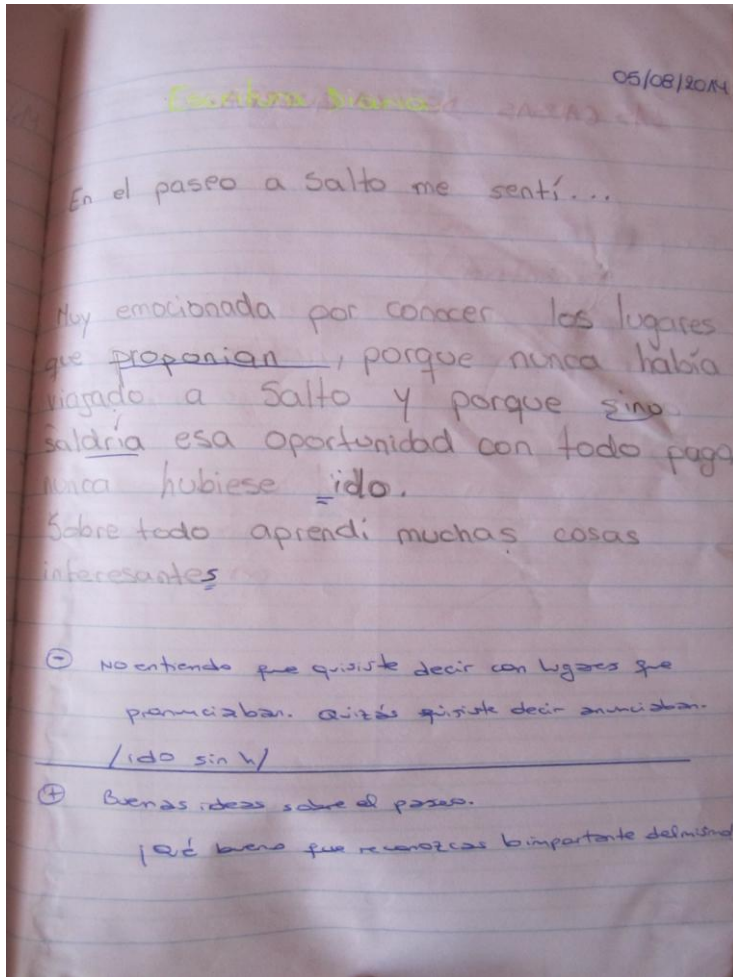 05/08/2014
Escritura Diaria
En el paseo a Salto me sentí...
Muy emocionada por conocer los lugares
que proponian, porque nunca había
viajado a Salto y porque sino
saldría esa oportunidad con todo pago
nunca hubiese ido.
Sobre todo aprendi muchas cosas
interesantes
⊖ No entiendo que quisiste decir con lugares que
pronunciaban. Quizás quisiste decir anunciaban.
/ido sin h/
⊕ Buenas ideas sobre el paseo.
¡Qué bueno que reconozcas lo importante del mismo